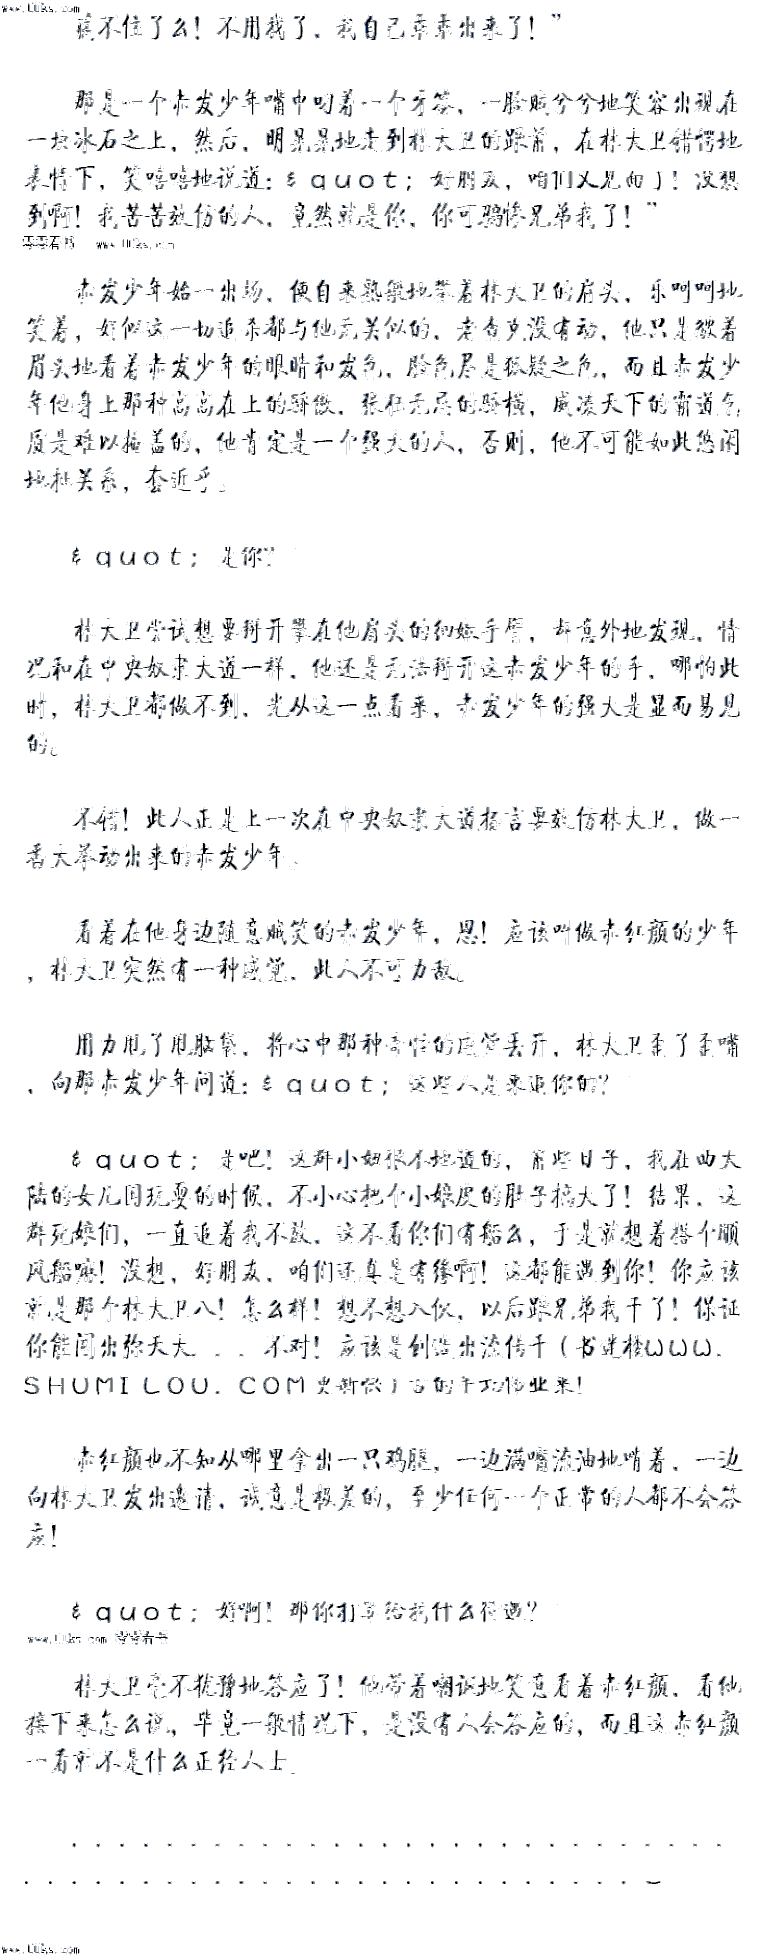 www.UUks.com
藏不住了么！不用找了，我自己乖乖出来了！”
那是一个赤发少年嘴中叼着一个牙签，一脸贼兮兮地笑容出现在
一块冰石之上，然后，明晃晃地走到林大卫的跟前，在林大卫错愕地
表情下，笑嘻嘻地说道：&quot；好朋友，咱们又见面了！没想
到啊！我苦苦效仿的人，竟然就是你，你可骗惨兄弟我了！”
零零看书 www.UUks.com
赤发少年始一出场，便自来熟般地攀着林大卫的肩头，乐呵呵地
笑着，好似这一切追杀都与他无关似的，老查歹没有动，他只是皱着
眉头地看着赤发少年的眼睛和发色，脸色尽是狐疑之色，而且赤发少
年他身上那种高高在上的骄傲，张狂无忌的骄横，威凌天下的霸道气
质是难以掩盖的，他肯定是一个强大的人，否则，他不可能如此悠闲
地扯关系，套近乎。
&quot；是你？
林大卫尝试想要掰开攀在他肩头的细嫩手臂，却意外地发现，情
况和在中央奴隶大道一样，他还是无法掰开这赤发少年的手，哪怕此
时，林大卫都做不到，光从这一点看来，赤发少年的强大是显而易见
的。
不错！此人正是上一次在中央奴隶大道扬言要效仿林大卫，做一
番大举动出来的赤发少年。
看着在他身边随意贼笑的赤发少年，恩！应该叫做赤红颜的少年
，林大卫突然有一种感觉，此人不可力敌。
用力甩了甩脑袋，将心中那种奇怪的感觉丢开，林大卫歪了歪嘴
，向那赤发少年问道：&quot；这些人是来追你的？
&quot；是吧！这群小妞很不地道的，前些日子，我在西大
陆的女儿国玩耍的时候，不小心把个小娘皮的肚子搞大了！结果，这
群死娘们，一直追着我不放，这不看你们有船么，于是就想着搭个顺
风船嘛！没想，好朋友，咱们还真是有缘啊！这都能遇到你！你应该
就是那个林大卫八！怎么样！想不想入伙，以后跟兄弟我干了！保证
你能闯出弥天大．．．不对！应该是创造出流传千（书迷楼ＷＷＷ．
ＳＨＵＭＩＬＯＵ．ＣＯＭ更新快）古的丰功伟业来！
赤红颜也不知从哪里拿出一只鸡腿，一边满嘴流油地啃着，一边
向林大卫发出邀请，诚意是极差的，至少任何一个正常的人都不会答
应！
&quot；好啊！那你打算给我什么待遇？
www.UUks.com 零零看书
林大卫毫不犹豫地答应了！他带着嘲讽地笑意看着赤红颜，看他
接下来怎么说，毕竟一般情况下，是没有人会答应的，而且这赤红颜
一看就不是什么正经人士。
．．．．．．．．．．．．．．．．．．．．．．．．．．．．
．．．．．．．．．．．．．．．．．．．．．．．．．．．
www.UUks.com